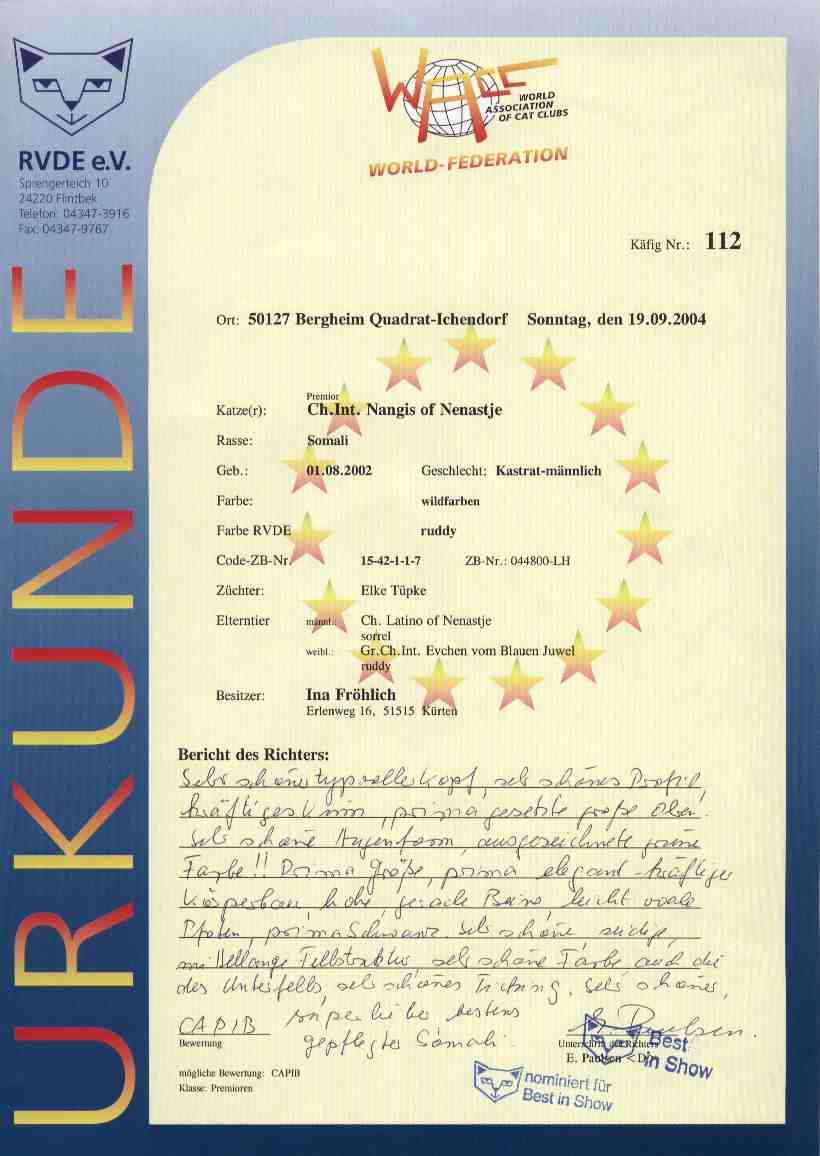 WACC
WORLD
ASSOCIATION
OF CAT CLUBS
WORLD-FEDERATION
RVDE e.V.
Sprengerteich 10
24220 Flintbek
Telefon: 04347-3916
Fax: 04347-9767
URKUNDE
Käfig Nr.: 112
Ort: 50127 Bergheim Quadrat-Ichendorf Sonntag, den 19.09.2004
Premior
Katze(r): Ch.Int. Nangis of Nenastje
Rasse: Somali
Geb.: 01.08.2002 Geschlecht: Kastrat-männlich
Farbe: wildfarben
Farbe RVDE ruddy
Code-ZB-Nr. 15-42-1-1-7 ZB-Nr.: 044800-LH
Züchter: Elke Tüpke
Elterntier männl.: Ch. Latino of Nenastje
sorrel
weibl.: Gr.Ch.Int. Evchen vom Blauen Juwel
ruddy
Besitzer: Ina Fröhlich
Erlenweg 16, 51515 Kürten
Bericht des Richters:
Sehr schöner typvoller Kopf, sehr schönes Profil,
kräftiges Kinn, prima gesetzte große Ohren.
Sehr schöne Augenform, ausgezeichnete grüne
Farbe!! Prima Größe, prima elegant-kräftiger
Körperbau, hohe, gerade Beine, leicht ovale
Pfoten, prima Schwanz. Sehr schöne, seidige,
mittellange Fellstruktur, sehr schöne Farbe auch die
des Unterfells, sehr schönes Ticking. Sehr schöner,
CAPIB lieber bestens
gepflegter Somali.
E. Paulsen.
Bewertung Unterschrift des Richters
E. Paulsen <D>
mögliche Bewertung: CAPIB
Klasse: Premioren
Best
in Show
nominiert für
Best in Show